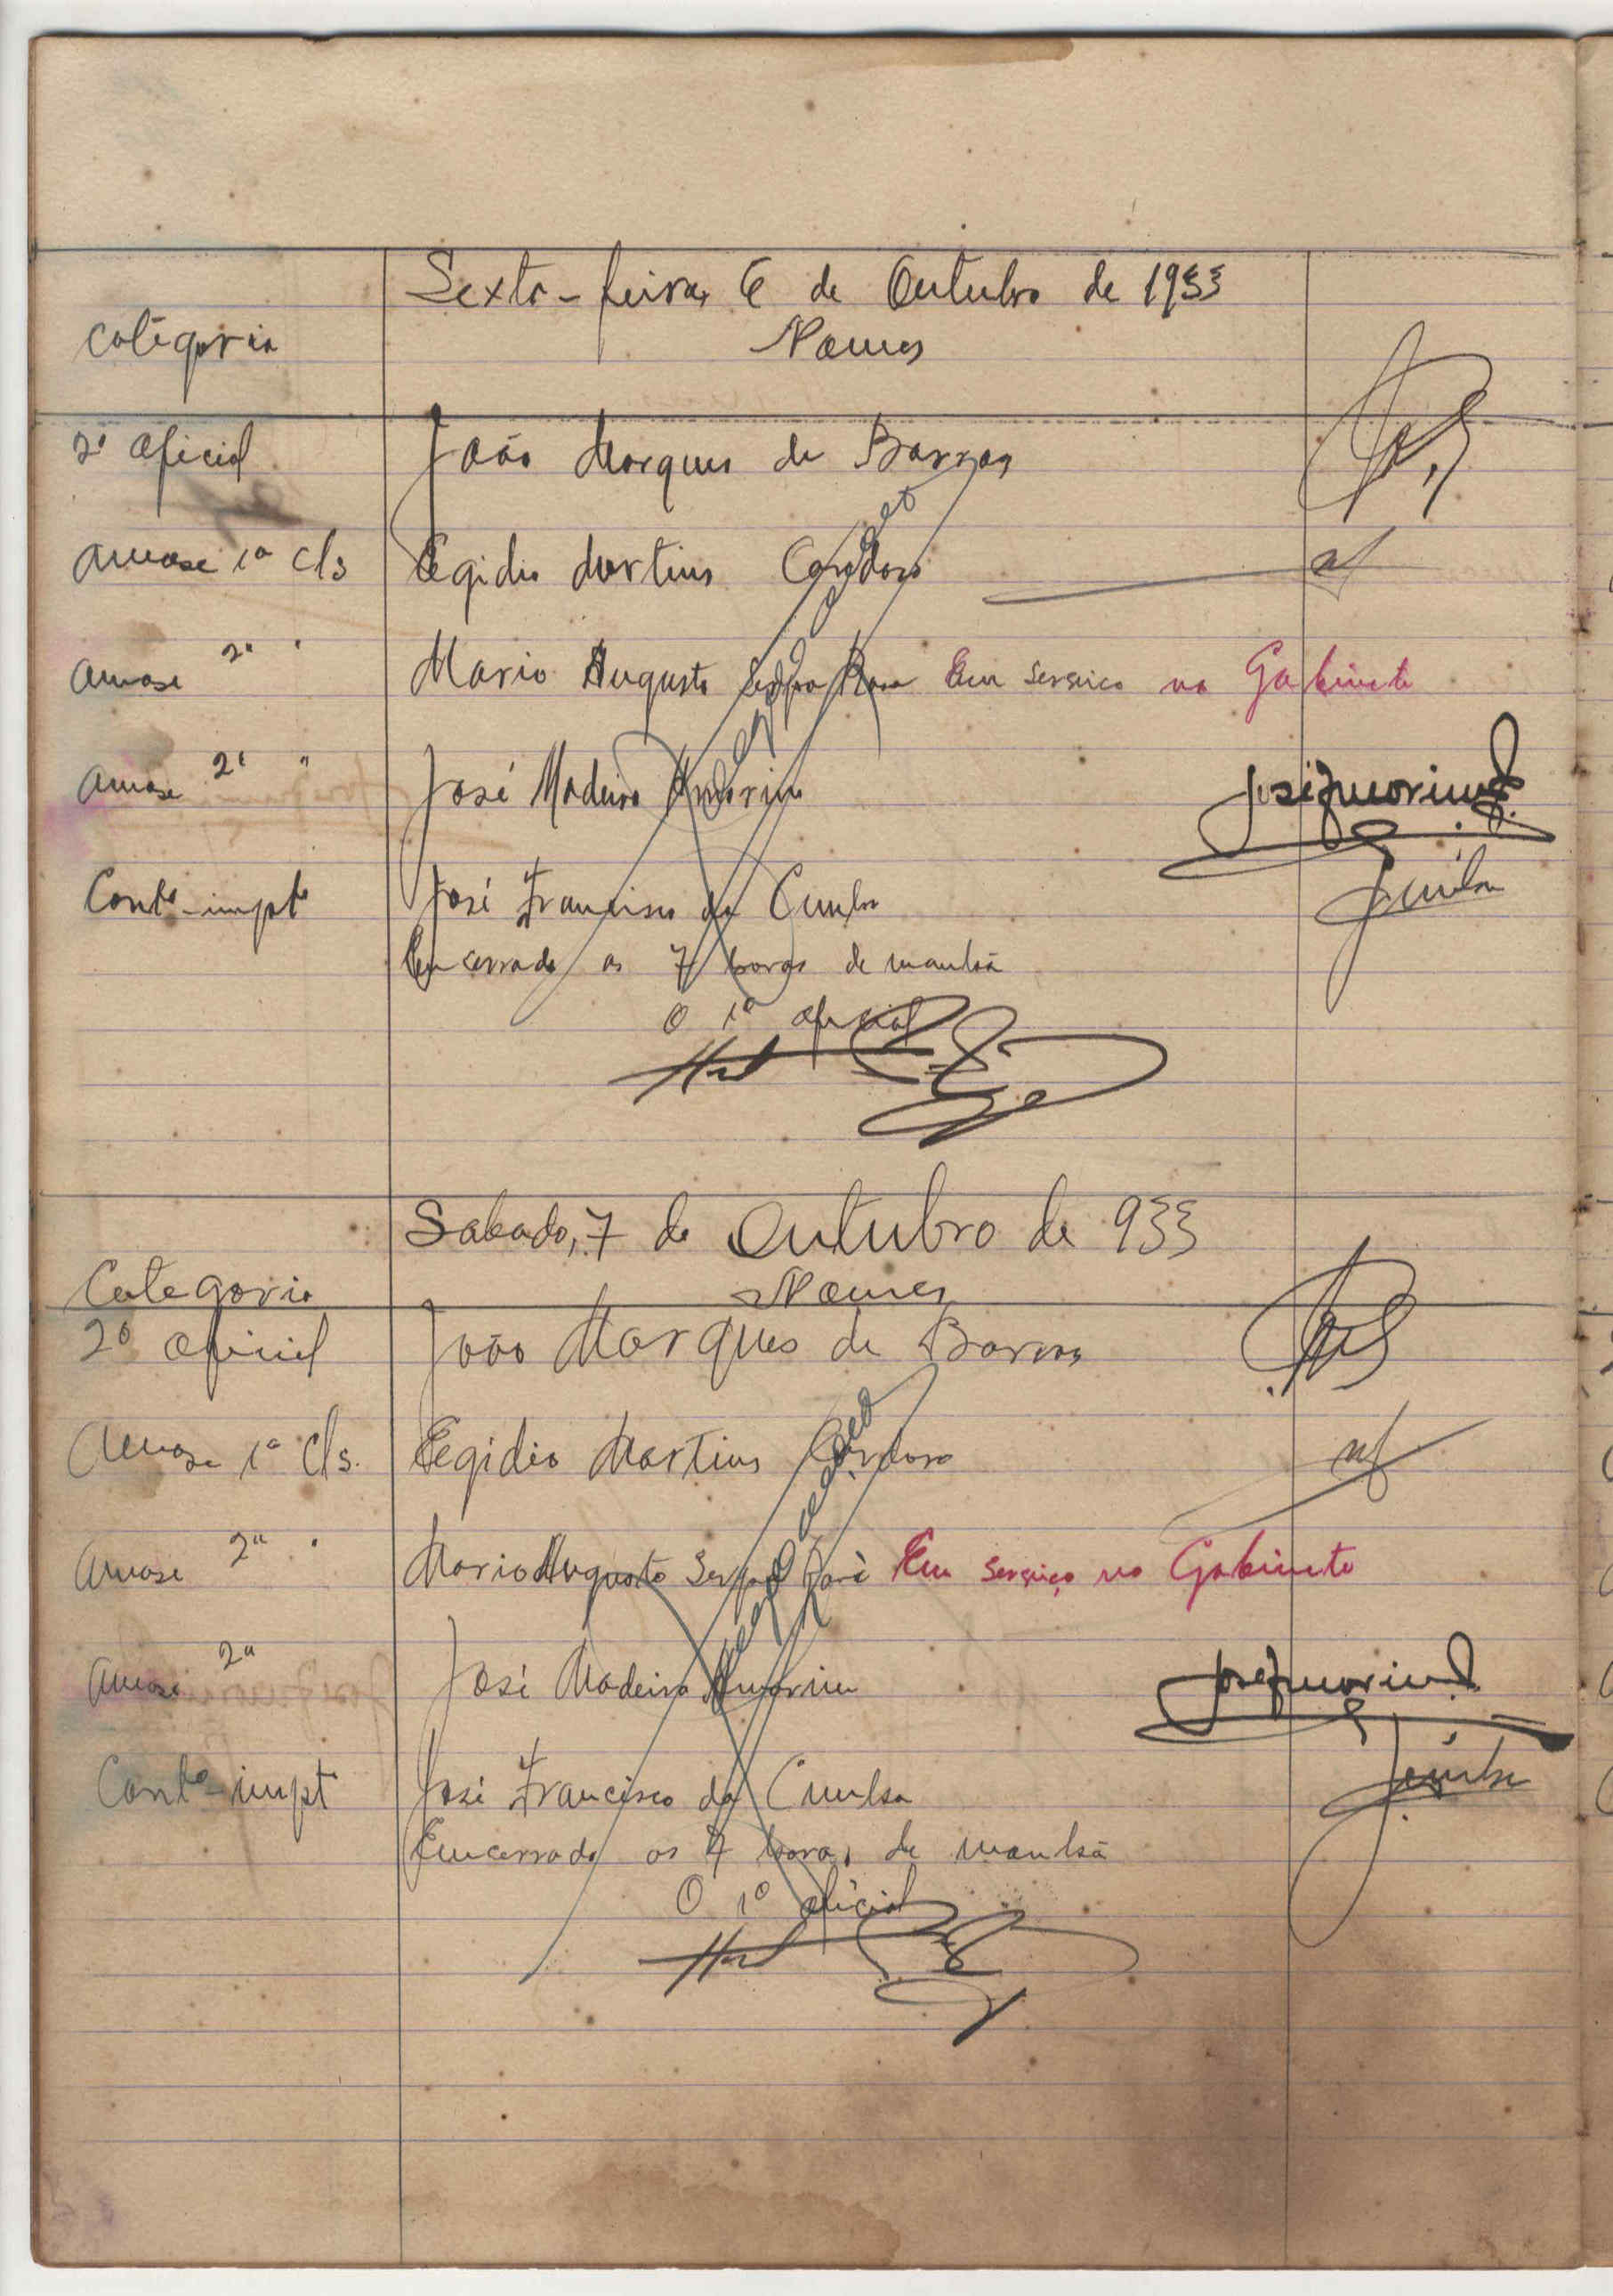 Sexta-feira, 6 de Outubro de 1933
Categoria Nomes
2º Oficial João Marques de Barros
Amase 1ª Cls Egidio Martins Cardoso
Amase 2ª " Mario Augusto Em serviço no Gabinete
Amase 2ª " José Madeira Amorim JoséAmorim
Contº impto José Francisco da Cunha JCunha
Encerrado as 7 horas de manhã
O 1º oficial
Sabado, 7 de Outubro de 933
Categoria Nomes
2º Oficial João Marques de Barros
Amase 1ª Cls. Egidio Martins Cardoso
Amase 2ª " Mario Augusto Em serviço no Gabinete
Amase 2ª José Madeira Amorim JoséAmorim
Contº impt José Francisco da Cunha JCunha
Encerrado as 7 horas de manhã
O 1º oficial